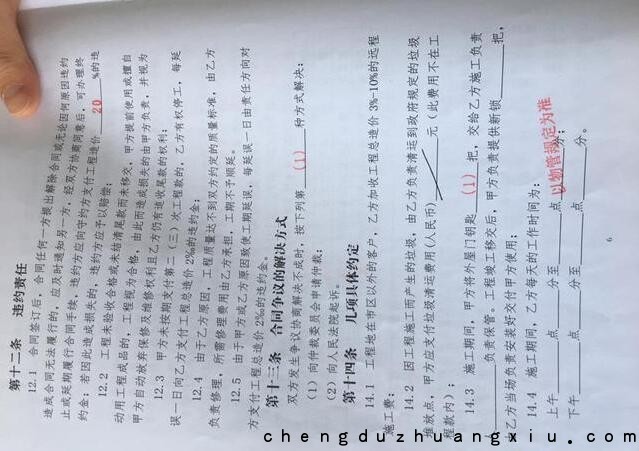 第十二条 违约责任
12.1 合同签订后，合同任何一方提出解除合同或无论因何原因违约
造成合同无法履行的，应及时通知另一方，经双方协商同意后，可办理终
止或延期履行合同手续，违约方应向守约方支付工程造价 20 %的违
约金；若因此造成损失的，违约方应予以赔偿；
12.2 工程未验收合格或未结清尾款而未移交，甲方提前使用或擅自
动用工程成品的，工程视为合格，由此而造成损失的由甲方负责，并视为
甲方自动放弃保修及维修权利且乙方仍有追收尾款的权利；
12.3 甲方未按期支付第二（三）次工程款的，乙方有权停工，每延
误一日向乙方支付工程总造价2‰的违约金；
12.4 由于乙方原因，工程质量达不到双方约定的质量标准，由乙方
负责修理，所需修理费用由乙方承担，工期不予顺延。
12.5 由于甲方或乙方原因致使工期延误，每延误一日由责任方向对
方支付工程总造价2‰的违约金。
第十三条 合同争议的解决方式
双方发生合同争议协商解决不成时，按下列第 (1) 种方式解决：
(1) 向仲裁委员会申请仲裁；
(2) 向人民法院起诉。
第十四条 几项具体约定
14.1 工程地在市区以外的客户，乙方加收工程总造价3%-10%的远程
施工费；
14.2 因工程施工而产生的垃圾，由乙方负责清运到政府规定的垃圾
堆放点，甲方应支付垃圾清运费用(人民币) 元（此费用不在工
程款内）；
14.3 施工期间，甲方将外屋门钥匙 (1) 把，交给乙方施工负责
负责保管。工程竣工移交后，甲方负责提供新锁 把，
由乙方当场负责安装好交付甲方使用；
14.4 施工期间，乙方每天的工作时间为：
上午 点 分至 点 分；
以物管规定为准
下午 点 分至 点 分。
6
chengduzhuangxiu.com